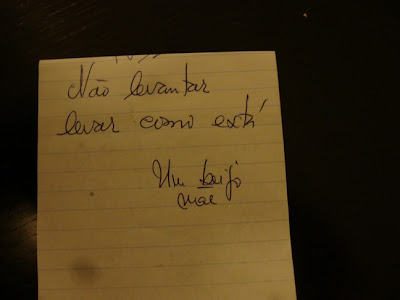 Não levantar
levar como está
Um beijo
mãe